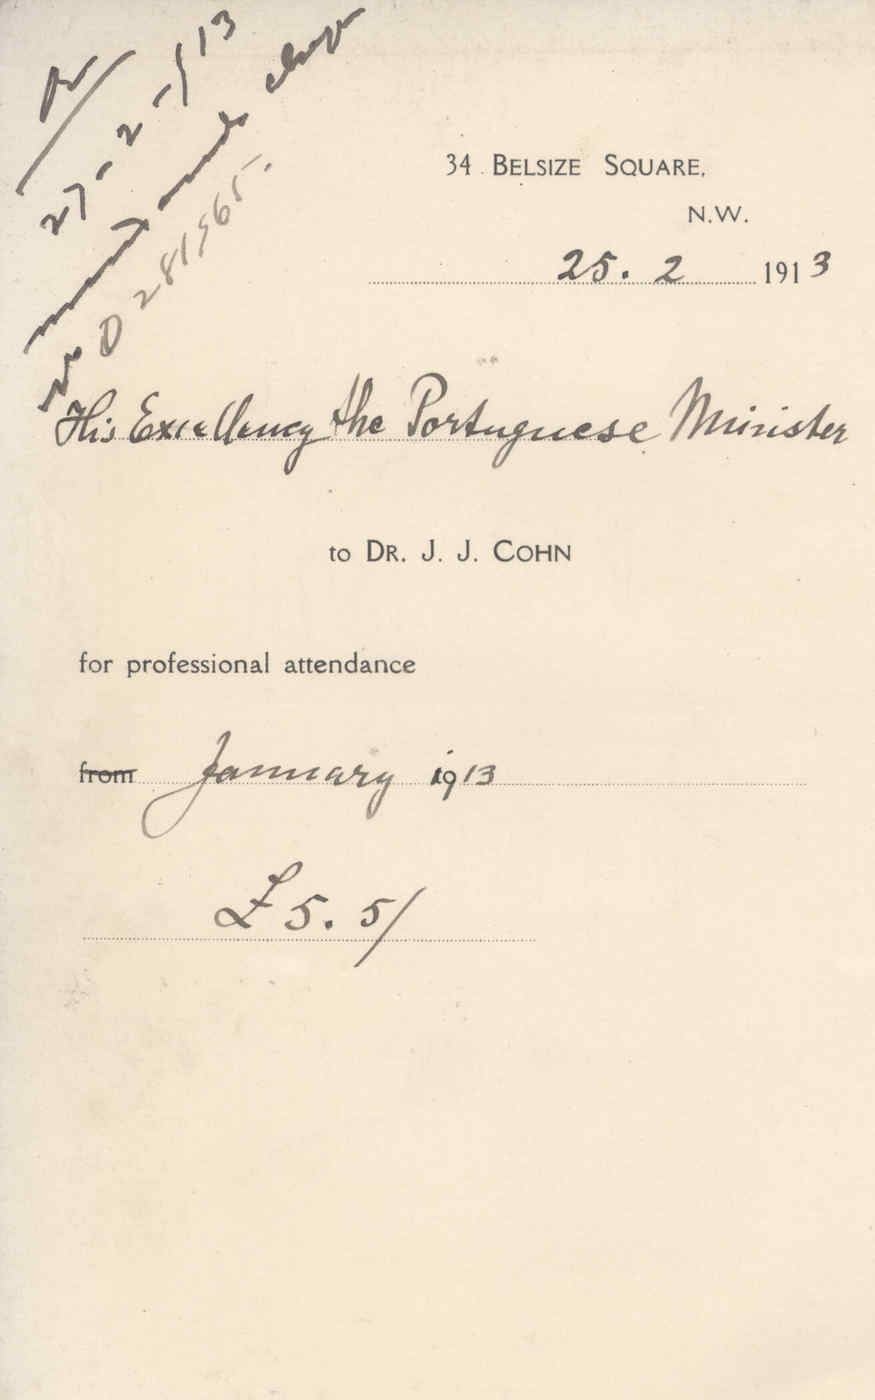 27-2-913
No D 281565.
34 BELSIZE SQUARE,
N.W.
25. 2 1913
His Excellency the Portuguese Minister
to DR. J. J. COHN
for professional attendance
from January 1913
£5. 5/